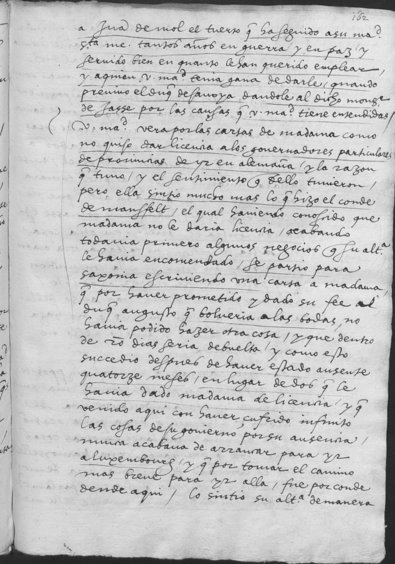 162
a Jua de mol el tuerto q ha seguido a su mad
esta me. tantos años en guerra y en paz y
servido bien en quanto le han querido emplear,
y a quien v. mad tenia gana de darle, quando
previno el duq de savoya dandole al dicho monsr
de fasse por las causas q v. mad tiene entendidas/
v. mad vera por las cartas de madama como
no quiso dar licencia a los governadores particulares
de provincias de yr en alemaña, y la razon
q tuvo, y el sentimiento q dello tuvieron,
pero ella sintio mucho mas lo q hizo el conde
de mansfelt, el qual haviendo conoscido que
madama no le daria licencia, acabando
todavia primero algunos negocios q su alta
le havia encomendado, se partio para
saxonia escriviendo una carta a madama,
q por haver prometido y dado su fee al
duq augusto q bolveria a las bodas, no
havia podido hazer otra cosa, y que dentro
de 20 dias seria de buelta, y como esto
succedio despues de haver estado ausente
quatorze meses, en lugar de dos q le
havia dado madama de licencia, y q
venido aqui con haver sufrido infinito
las cosas de su govierno por su ausencia,
nunca acabava de arrancar para yr
a luxembourg, y q por tomar el camino
mas breve para yr alla, fue por conde
dende aqui, lo sintio su alta de manera